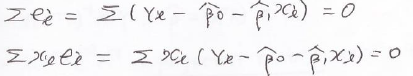 Σeᵢ = Σ(Yᵢ − β̂₀ − β̂₁xᵢ) = 0
Σxᵢeᵢ = Σxᵢ(Yᵢ − β̂₀ − β̂₁xᵢ) = 0